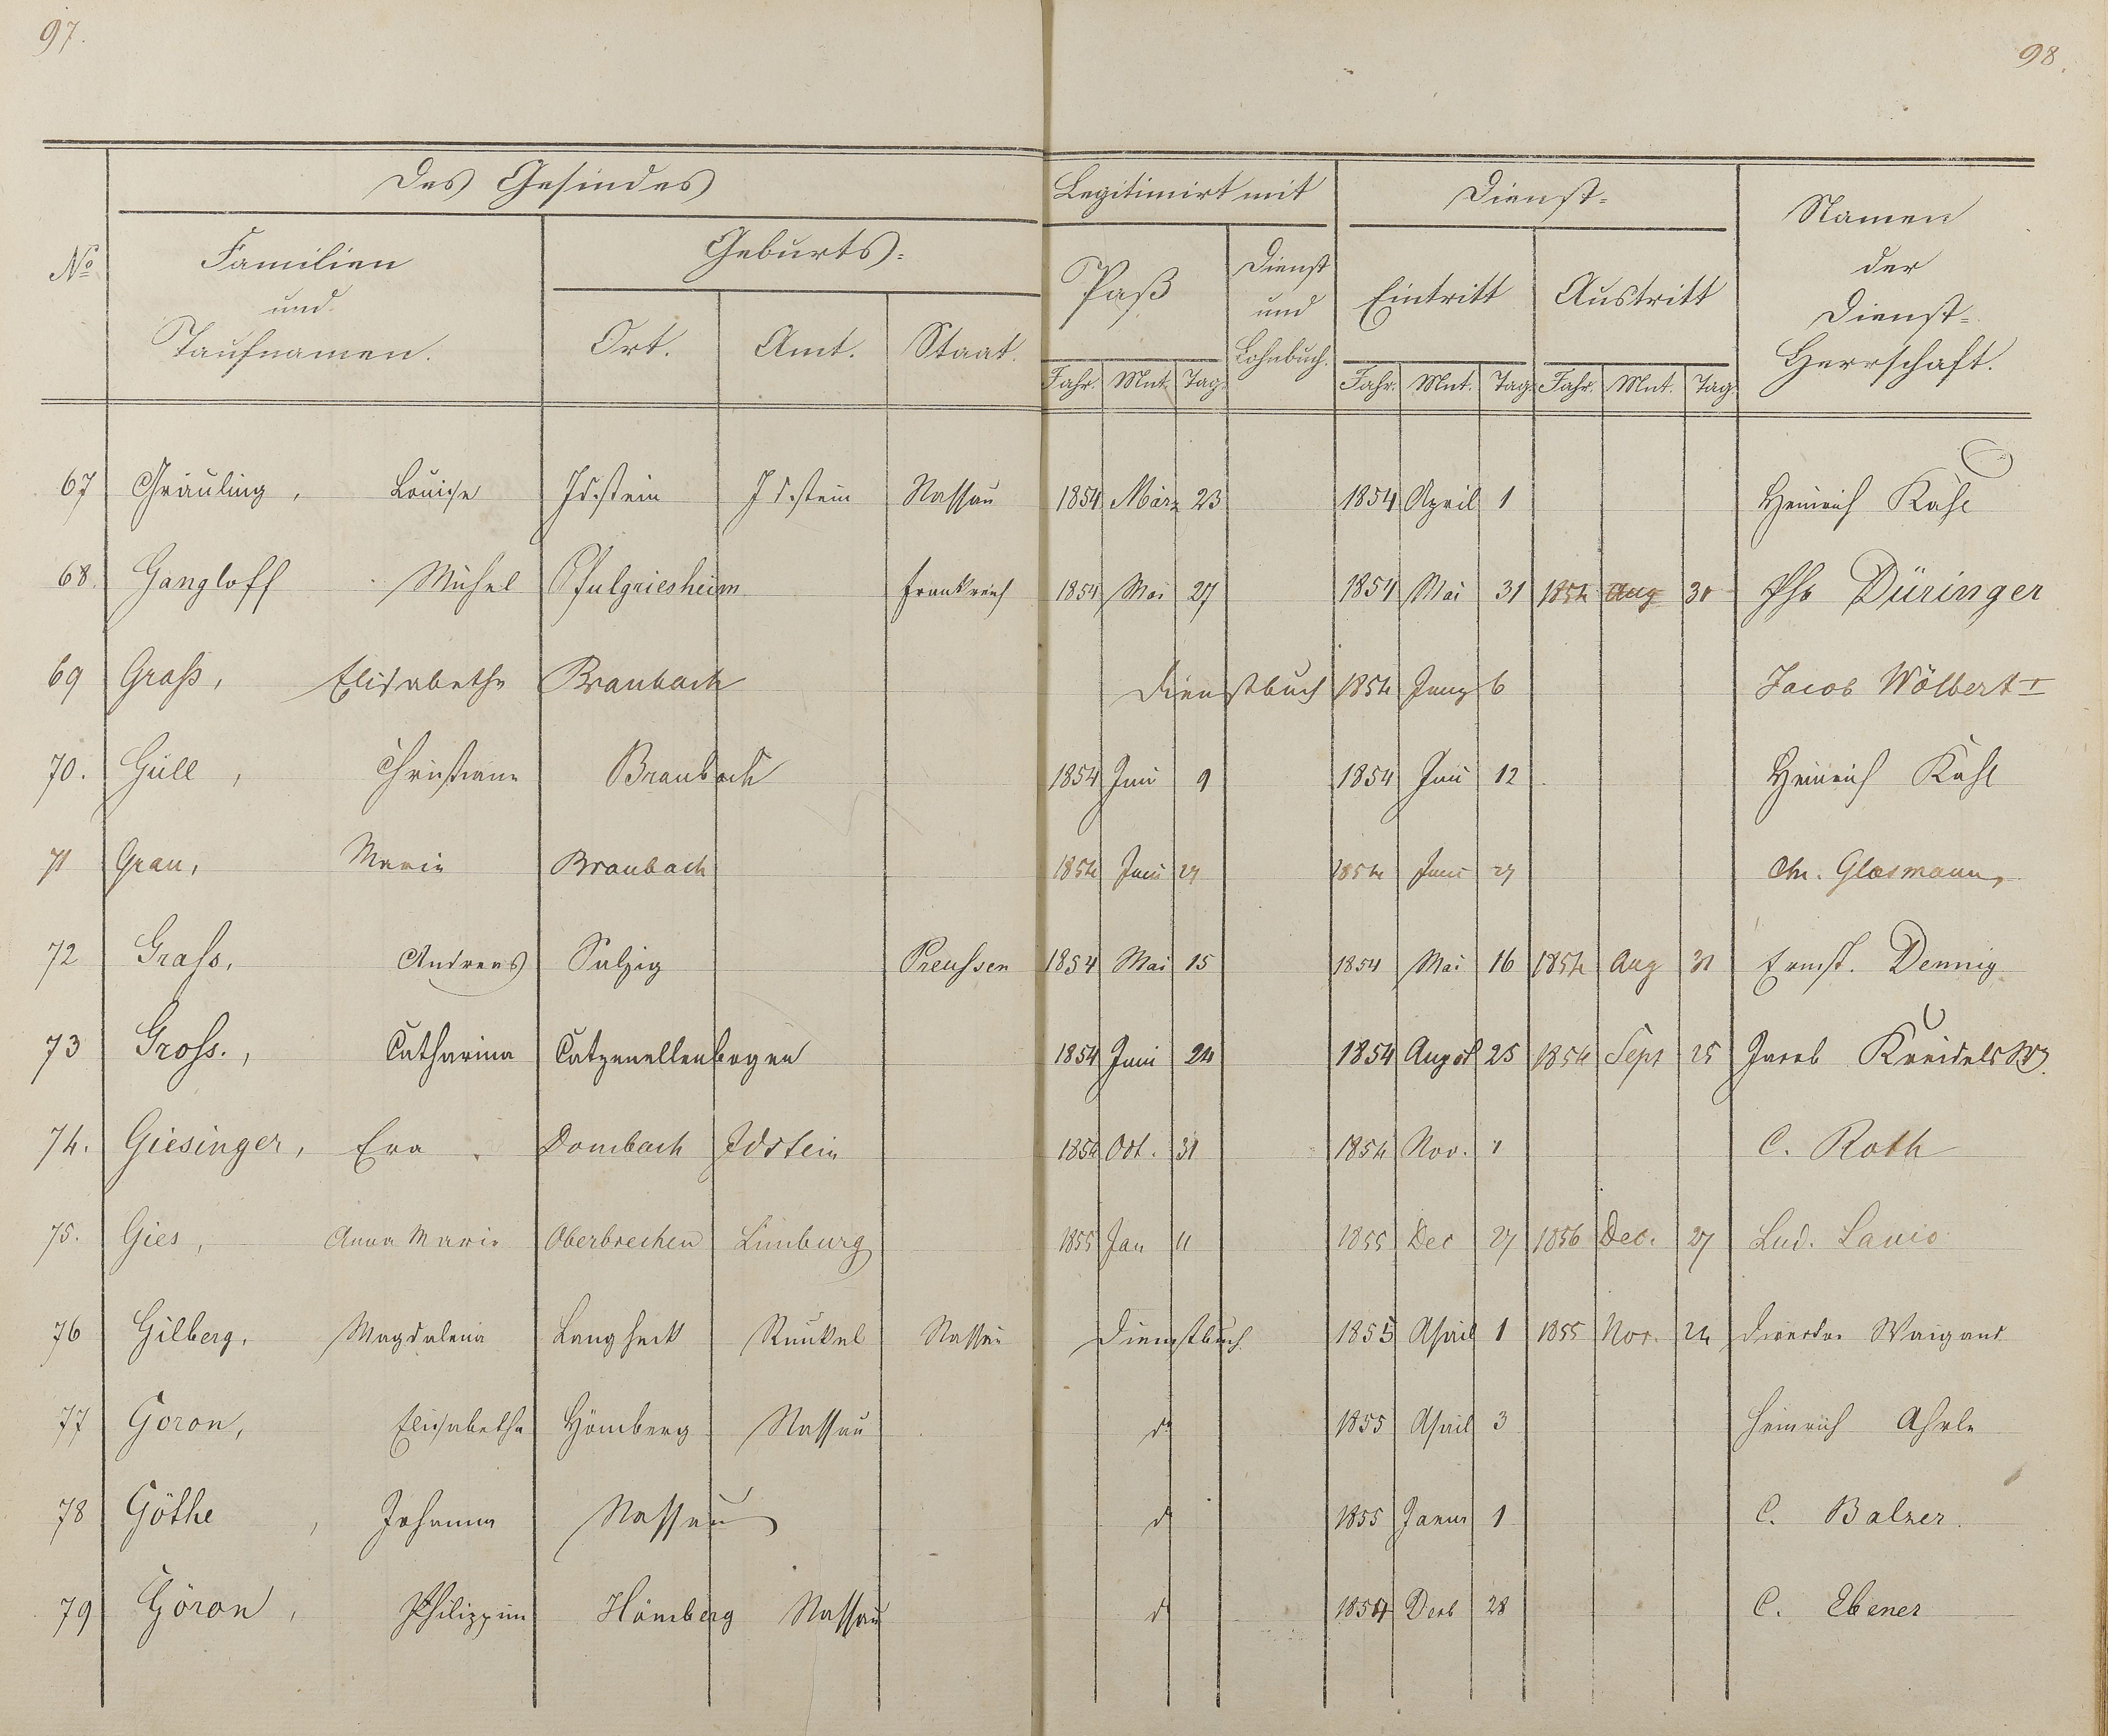 97.
98.
Des Gesindes
Legitimirt mit
Dienst-
Namen
der
Dienst-
Herrschaft.
No
Familien
und
Taufnamen.
Geburts-
Ort. Amt. Staat.
Paß
Dienst
und
Lohnbuch.
Eintritt
Austritt
Jahr. Mnt. Tag.
Jahr. Mnt. Tag. Jahr. Mnt. Tag.
67 Gräuling, Louise Idstein Idstein Nassau 1854 März 23 1854 April 1 Heinrich Käsl
68. Gangloff Michel Pfulgriesheim Frankreich 1854 Mai 27 1854 Mai 31 1854 Aug 30 Phs Düringer
69 Graß, Elisabethe Braubach Dienstbuch 1854 Juny 6 Jacob Wölbert I
70. Güll, Christiane Braubach 1854 Juni 9 1854 Juni 12 Heinrich Käsl
71 Grau, Marie Braubach 1854 Juni 27 1854 Juni 27 Chr. Glasmann
72 Grass, Andreas Salzig Preussen 1854 Mai 15 1854 Mai 16 1854 Aug 31 Ernst. Dennig
73 Gross., Catharina Catzenellenbogen 1854 Juni 24 1854 August 25 1854 Sept 25 Jacob Kreidels W.
74. Giesinger, Eva Dombach Idstein 1854 Oct. 31 1854 Nov. 1 C. Roth
75. Gies, Anna Marie Oberbrechen Limburg 1855 Jan 11 1855 Dec 27 1856 Dec. 27 Lud. Lanio
76 Gilberg, Magdalena Langheck Runkel Nassau Dienstbuch 1855 April 1 1855 Nov. 24 Director Weigand
77 Goron, Elisabetha Hömberg Nassau do 1855 April 3 Heinrich Ahrle
78 Göthe, Johanna Nassau do 1855 Janur 1 C. Balzer.
79 Göron, Philippine Hömberg Nassau do 1854 Decb 28 C. Ebener